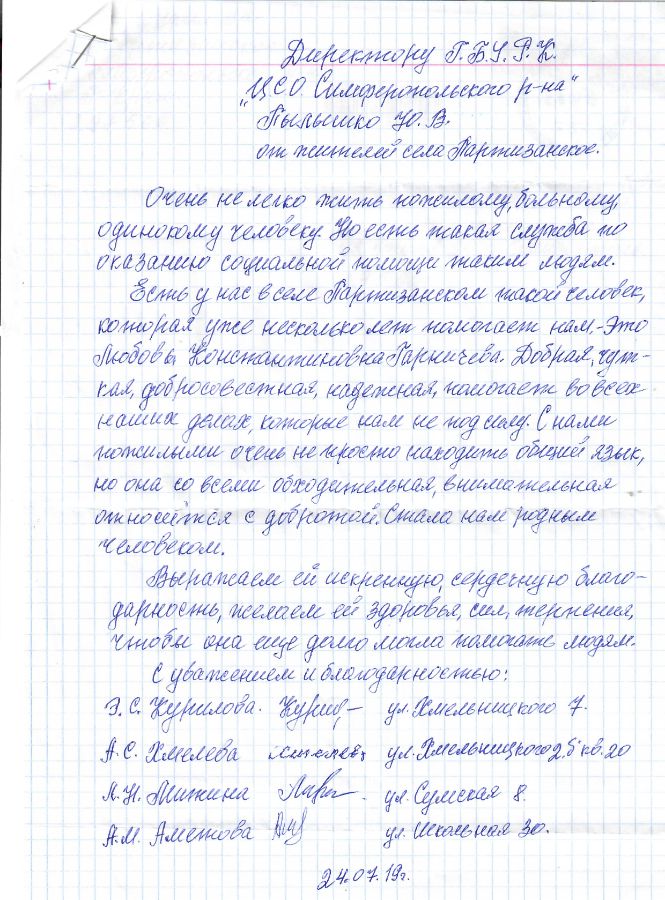 Директору Г.Б.У.Р.К.
"Ц.С.О Симферопольского р-на"
Пылышко Ю.В.
от жителей села Партизанское.
Очень не легко жить пожилому, больному,
одинокому человеку. Но есть такая служба по
оказанию социальной помощи таким людям.
Есть у нас в селе Партизанском такой человек,
которая уже несколько лет помогает нам,-Это
Любовь Константиновна Гарничева. Добрая, чут-
кая, добросовестная, надежная, помогает во всех
наших делах, которые нам не под силу. С нами
пожилыми очень не просто находить общий язык,
но она со всеми обходительная, внимательная
относится с добротой. Стала нам родным
человеком.
Выражаем ей искреннюю, сердечную благо-
дарность, желаем ей здоровья, сил, терпения,
чтобы она еще долго могла помогать людям.
С уважением и благодарностью:
З.С. Курилова. ул. Хмельницкого 7.
А.С. Хмелева ул. Хмельницкого 2,5 кв. 20
Л.Н. Мижина ул. Сумская 8.
А.М. Аметова ул. Школьная 30.
24.07.19г.